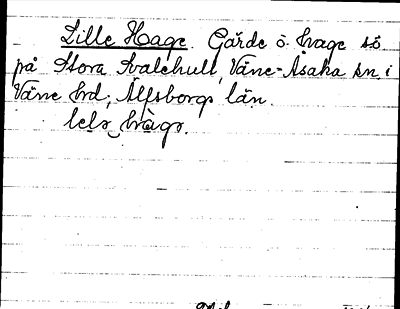 Lille Hage. Gärde o. hage sö
på Stora Svalehult, Väne-Åsaka sn, i
Väne hd, Älfsborgs län.